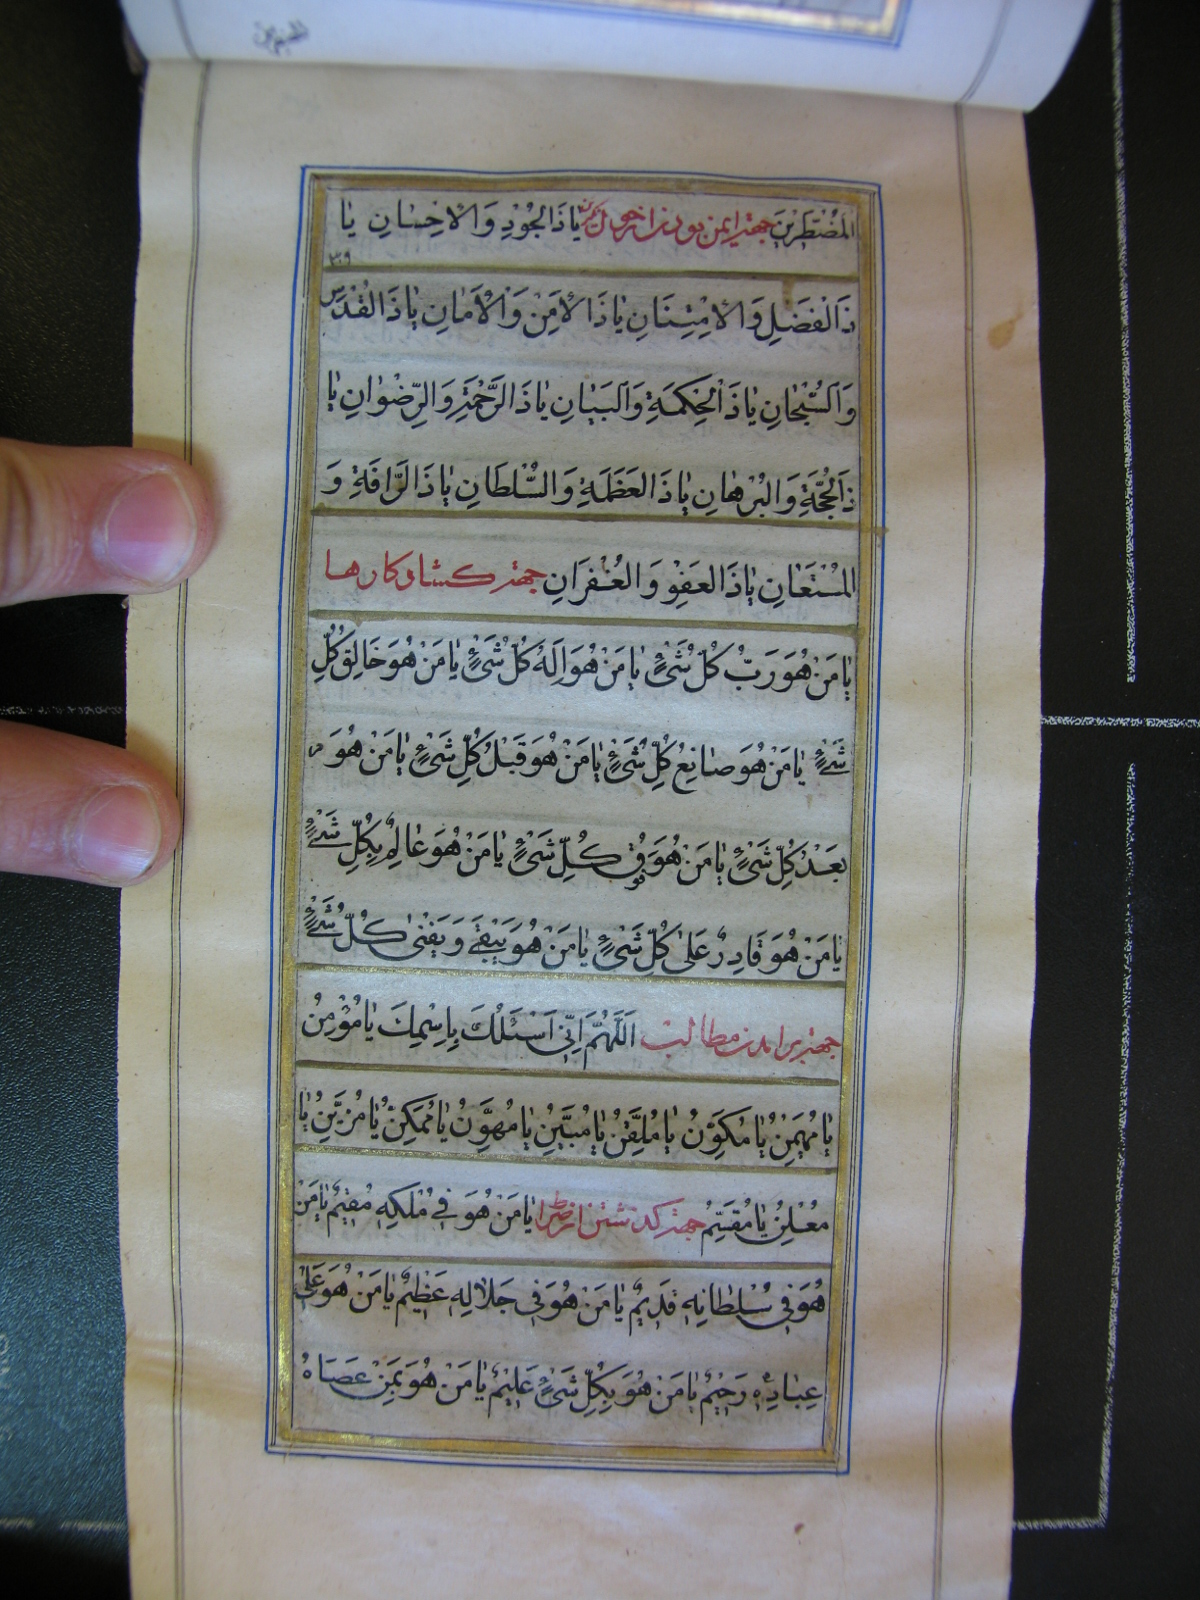 المضطرين جهت ایمن بودن از يا ذا الجود والاحسان يا
٣٠٩
ذا الفضل والامتنان يا ذا الامن والامان يا ذا القدس
والسبحان يا ذا الحكمة والبيان يا ذا الرحمة والرضوان يا
ذا الحجة والبرهان يا ذا العظمة والسلطان يا ذا الرافة و
المستعان يا ذا العفو والغفران جهت کشاد کارها
يا من هو رب كل شئ يا من هو اله كل شئ يا من هو خالق كل
شئ يا من هو صانع كل شئ يا من هو قبل كل شئ يا من هو
بعد كل شئ يا من هو فوق كل شئ يا من هو عالم بكل شئ
يا من هو قادر على كل شئ يا من هو يبقى ويفنى كل شئ
جهت برامدن مطالب اللهم انى اسئلك باسمك يا مؤمن
يا مهيمن يا مكون يا ملقن يا مبين يا مهون يا ممكن يا مزين يا
معلن يا مقسم جهت کذشتن از يا من هو فى ملكه مقيم يا من
هو فى سلطانه قديم يا من هو فى جلاله عظيم يا من هو على
عباده رحيم يا من هو بكل شئ عليم يا من هو بمن عصاه